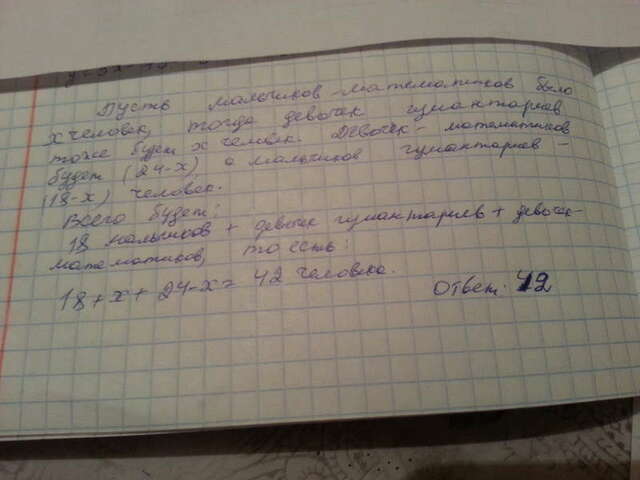 Пусть мальчиков-математиков было
х человек, тогда девочек гуманитариев
тоже будет х человек. Девочек-математиков
будет (24-х), а мальчиков гуманитариев -
(18-х) человек.
Всего будет:
18 мальчиков + девочек гуманитариев + девочек-
математиков, то есть:
18+х+24-х= 42 человека.
Ответ: 42